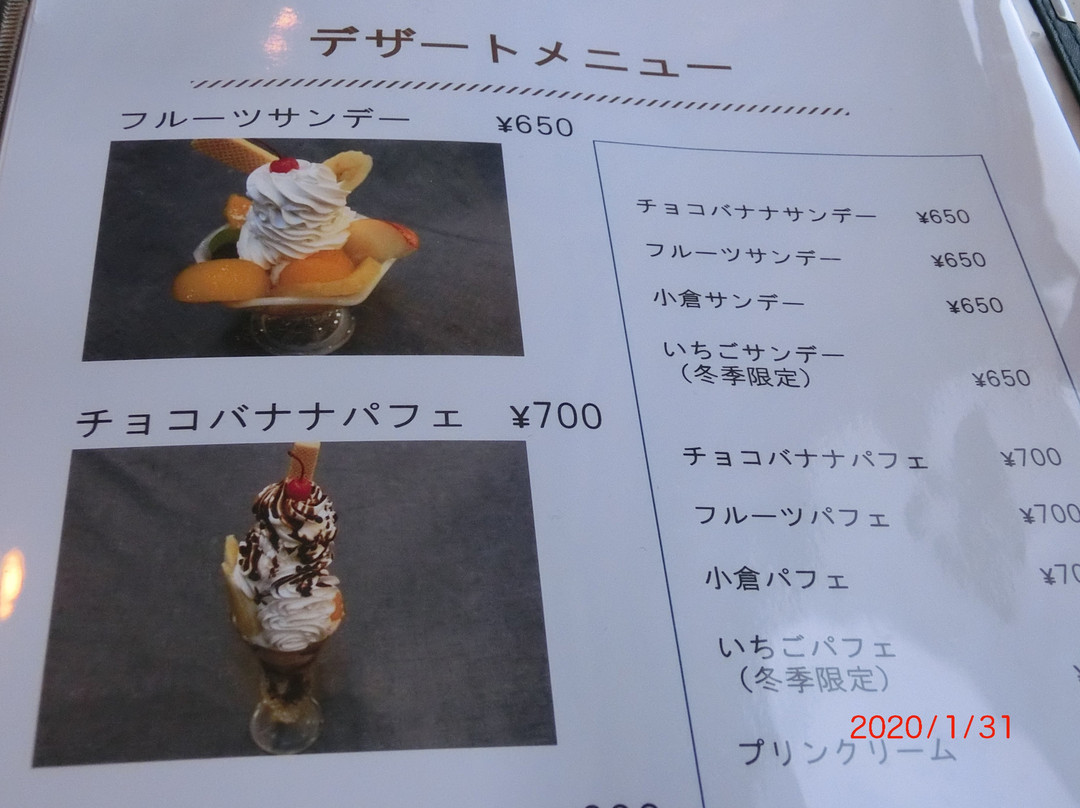 デザートメニュー
フルーツサンデー ¥650
チョコバナナパフェ ¥700
チョコバナナサンデー ¥650
フルーツサンデー ¥650
小倉サンデー ¥650
いちごサンデー
(冬季限定) ¥650
チョコバナナパフェ ¥700
フルーツパフェ ¥700
小倉パフェ
いちごパフェ
(冬季限定)
プリンクリーム
2020/1/31